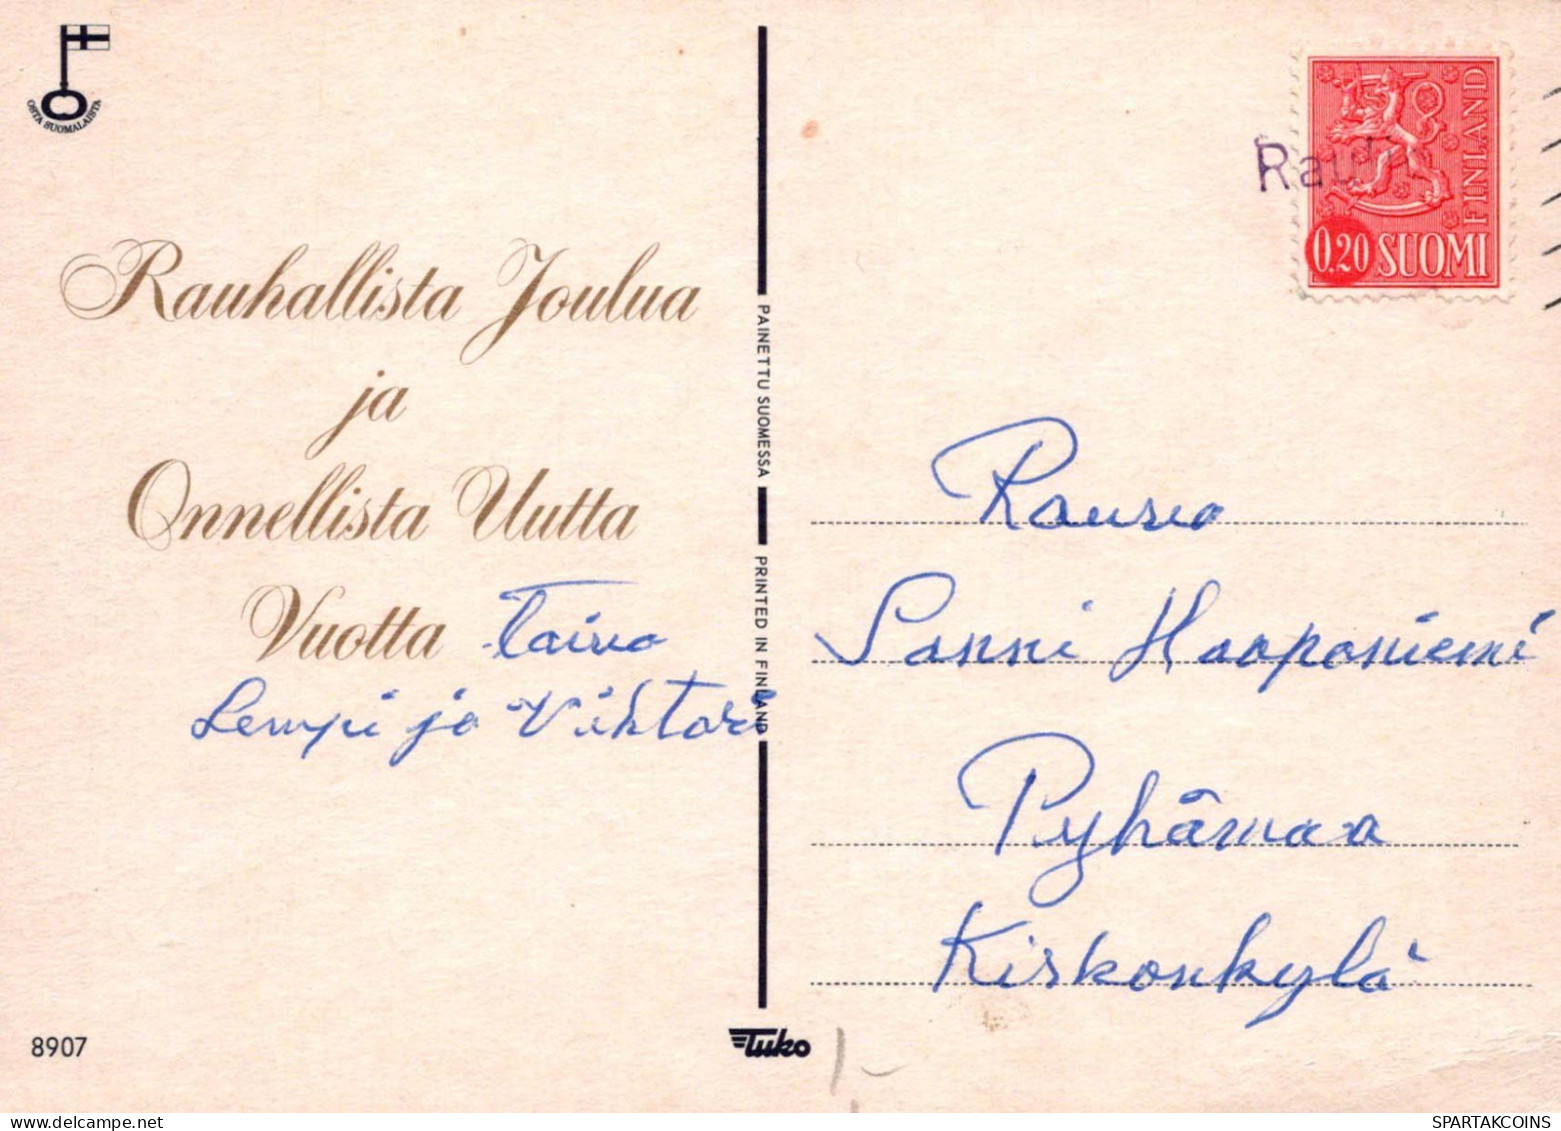 OSTA SUOMALAISTA
Rauhallista Joulua
ja
Onnellista Uutta
Vuotta Taivo
Lempi ja Vihtori
8907
PAINETTU SUOMESSA
PRINTED IN FINLAND
Tuko
FINLAND
0.20 SUOMI
Rouva
Sanni Haaponiemi
Pyhämaa
Kirkonkylä
1-
SPARTAKCOINS